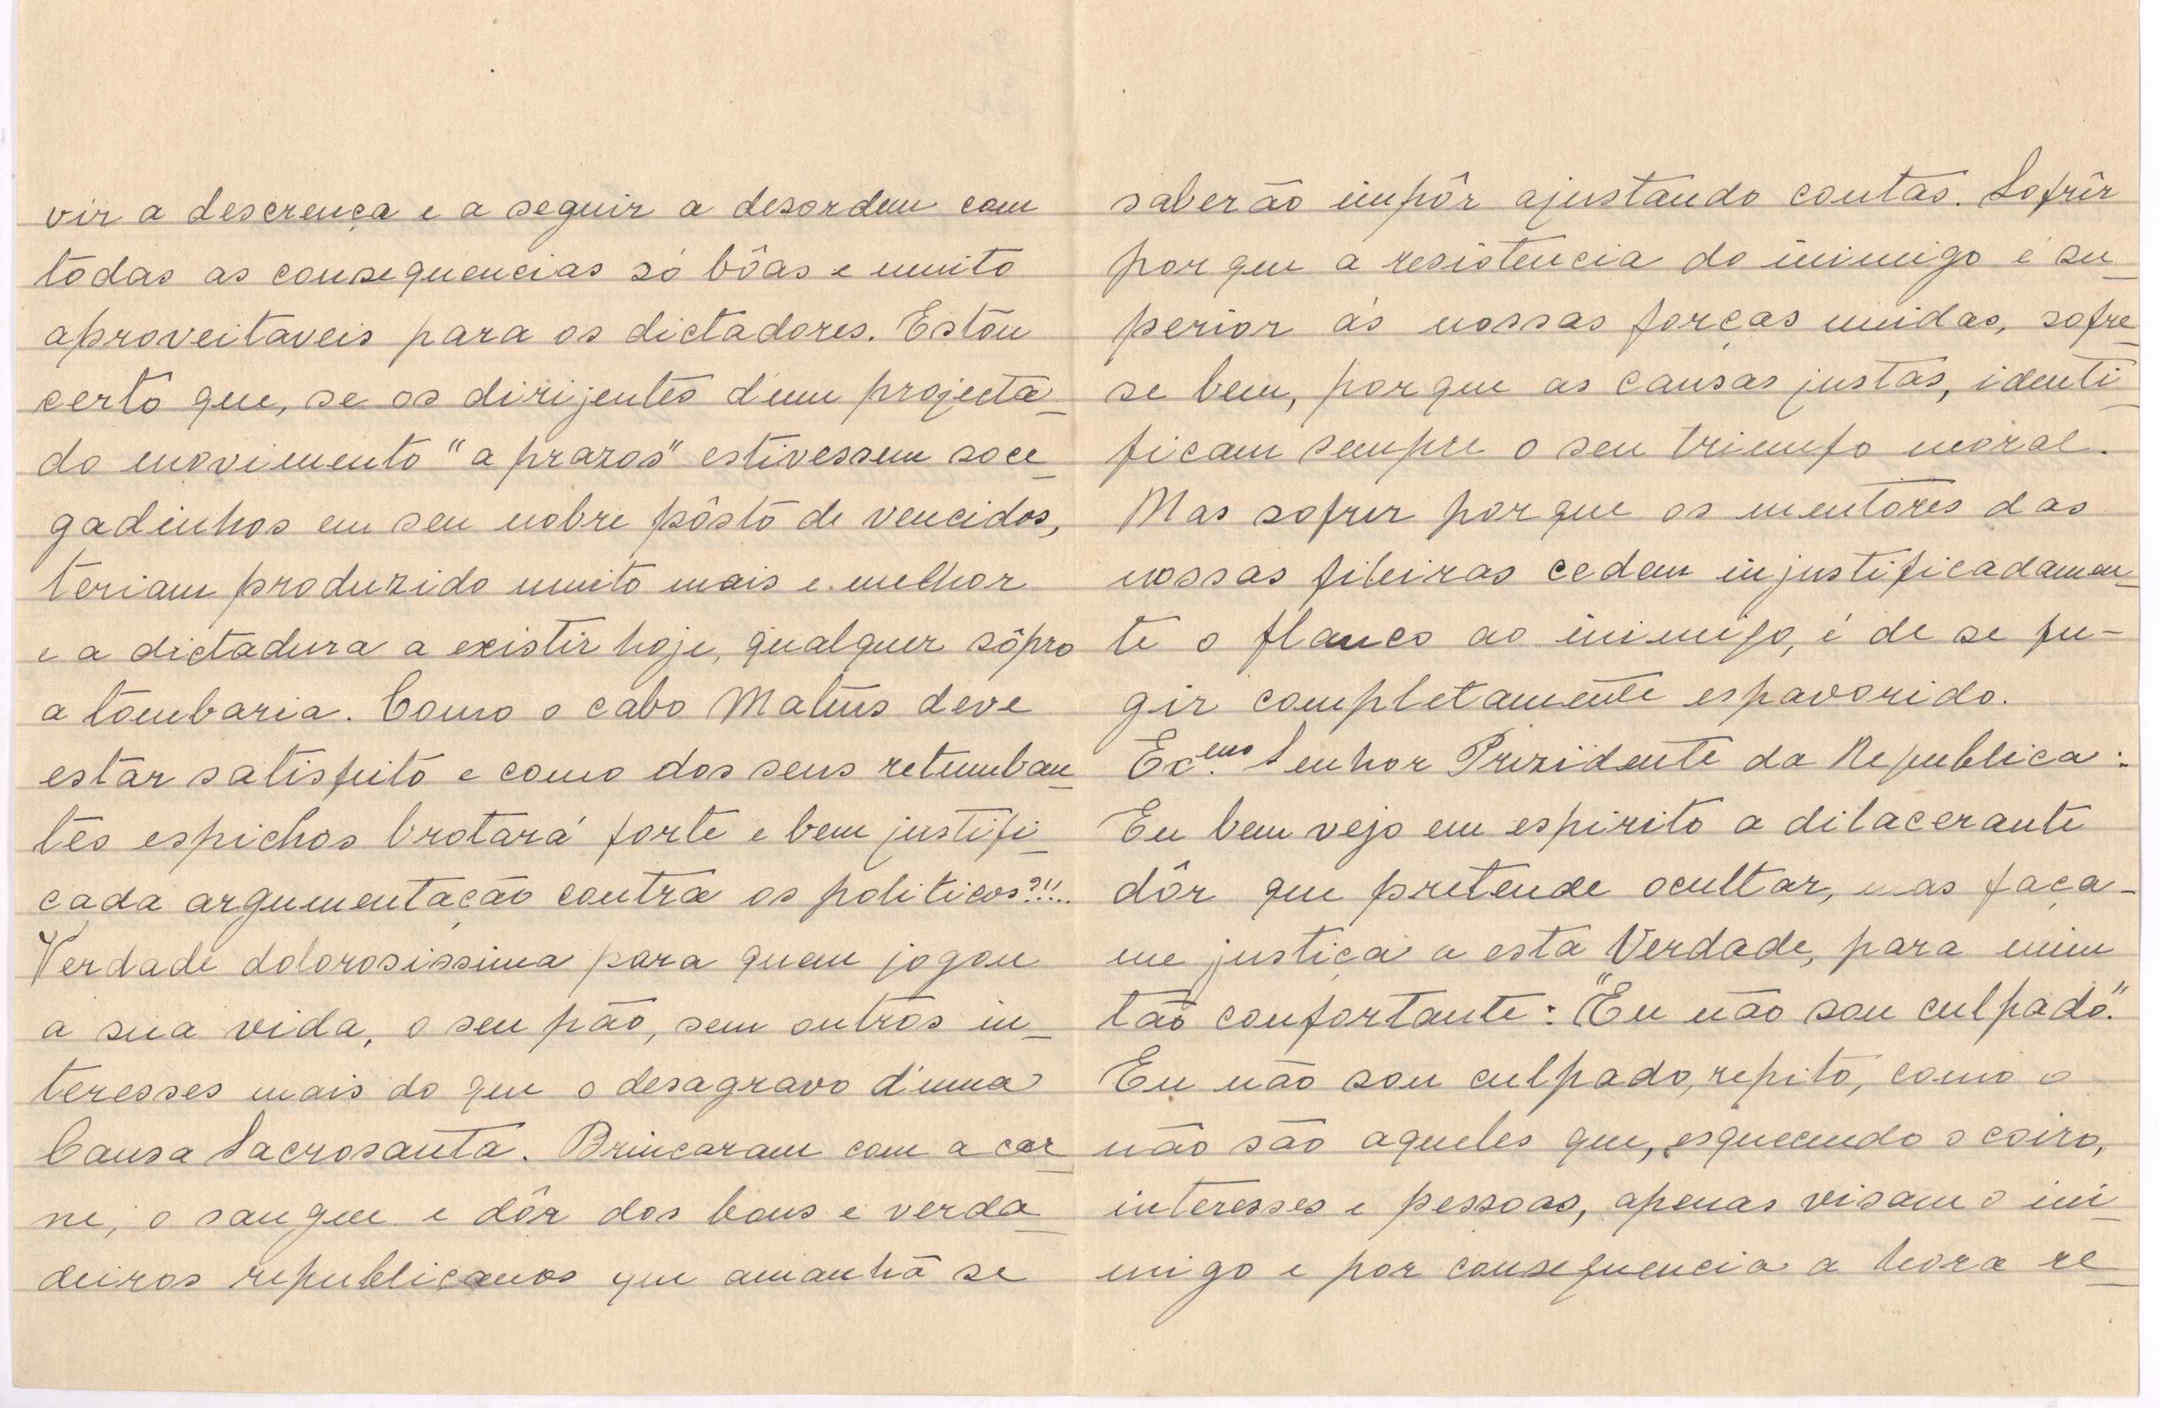 vir a descrença e a seguir a desordem com
tôdas as consequencias só bôas e muito
aproveitaveis para os dictadores. Estou
certo que, se os dirijentes d'um projecta_
do movimento "a prazos" estivessem soce_
gadinhos em seu nobre pôsto de vencidos,
teriam produzido muito mais e melhor
e a dictadura a existir hoje, qualquer sôpro
a tombaria. Como o cabo Matins deve
estar satisfeito e como dos seus retumban_
tes espichos brotará forte e bem justifi_
cada argumentação contra os politicos?!!...
Verdade dolorosissima para quem jogou
a sua vida, o seu pão, sem outros in_
teresses mais do que o desagravo d'uma
Causa Sacrosanta. Brincaram com a car_
ne, o sangue e dôr dos bons e verda_
deiros republicanos que amanhã se
saberão impôr ajustando contas. Sofrêr
porque a resistencia do inimigo é su_
perior ás nossas forças unidas, sofre_
se bem, porque as causas justas, identi_
ficam sempre o seu triumfo moral.
Mas sofrer porque os mentores das
nossas fileiras cedem injustificadamen_
te o flanco ao inimigo, é de se fu-
gir completamente espavorido.
Ex.mo Senhor Prezidente da Republica:
Eu bem vejo em espirito a dilacerante
dôr que pretende ocultar, mas faça-
me justiça a esta Verdade, para mim
tão confortante: "Eu não sou culpado".
Eu não sou culpado, repito, como o
não são aqueles que, esquecendo o coiro,
interesses e pessoas, apenas visam o ini_
migo e por consequencia a hora re_